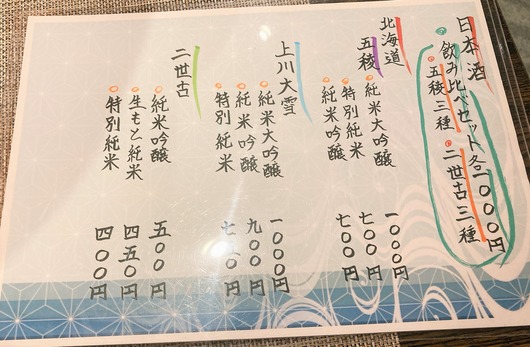 日本酒
飲み比べセット各一〇〇〇円
五稜三種 二世古三種
北海道
五稜
純米大吟醸 一〇〇〇円
特別純米 七〇〇円
純米吟醸 七〇〇円
上川大雪
純米大吟醸 一〇〇〇円
純米吟醸 九〇〇円
特別純米 七〇〇円
二世古
純米吟醸 五〇〇円
生もと純米 四五〇円
特別純米 四〇〇円